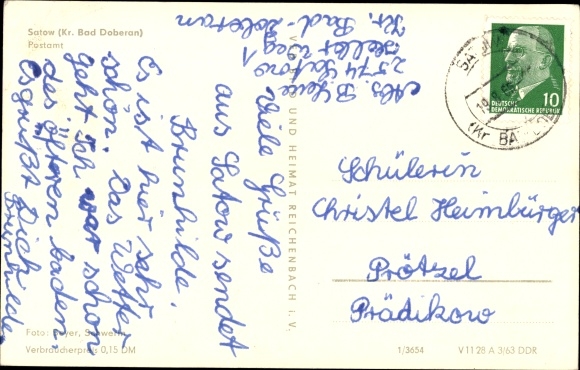 Satow (Kr. Bad Doberan)
Postamt
Abs. B.
2574 Satow
Heller Weg 1
Kr. Bad-
Doberan
Viele Grüße
aus Satow sendet
Brunhilde.
Es ist hier sehr
schön. Das Wetter
geht. Ich war schon
des Öfteren baden.
Es grüßt Dich
Brunhilde
VERLAG BILD UND HEIMAT REICHENBACH i. V.
DEUTSCHE
DEMOKRATISCHE REPUBLIK
10
(Kr. BAD
Schülerin
Christel Heimbürger
Prötzel
Prädikow
Foto: Beyer, Schwerin
Verbraucherpreis 0,15 DM
1/3654
V 11 28 A 3/63 DDR